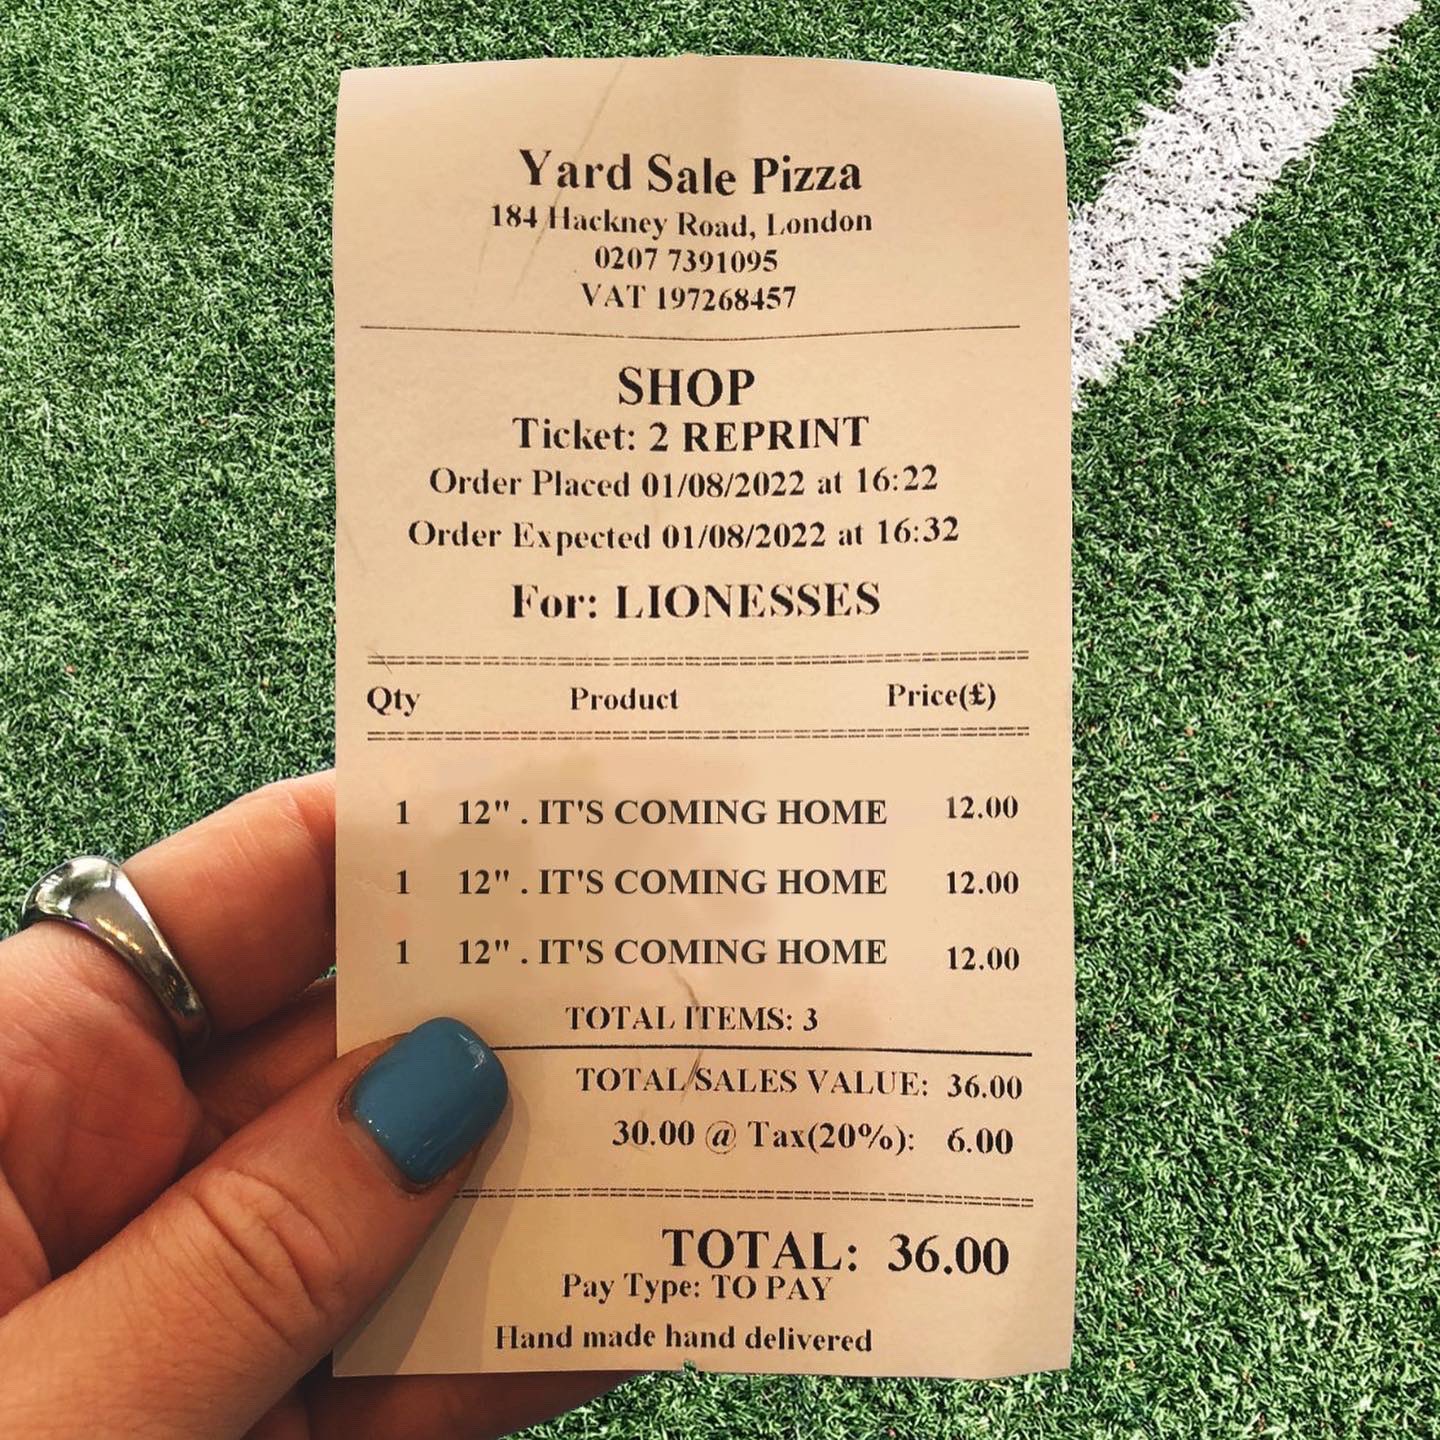 Yard Sale Pizza
184 Hackney Road, London
0207 7391095
VAT 197268457
SHOP
Ticket: 2 REPRINT
Order Placed 01/08/2022 at 16:22
Order Expected 01/08/2022 at 16:32
For: LIONESSES
Qty Product Price(£)
1 12" . IT'S COMING HOME 12.00
1 12" . IT'S COMING HOME 12.00
1 12" . IT'S COMING HOME 12.00
TOTAL ITEMS: 3
TOTAL SALES VALUE: 36.00
30.00 @ Tax(20%): 6.00
TOTAL: 36.00
Pay Type: TO PAY
Hand made hand delivered